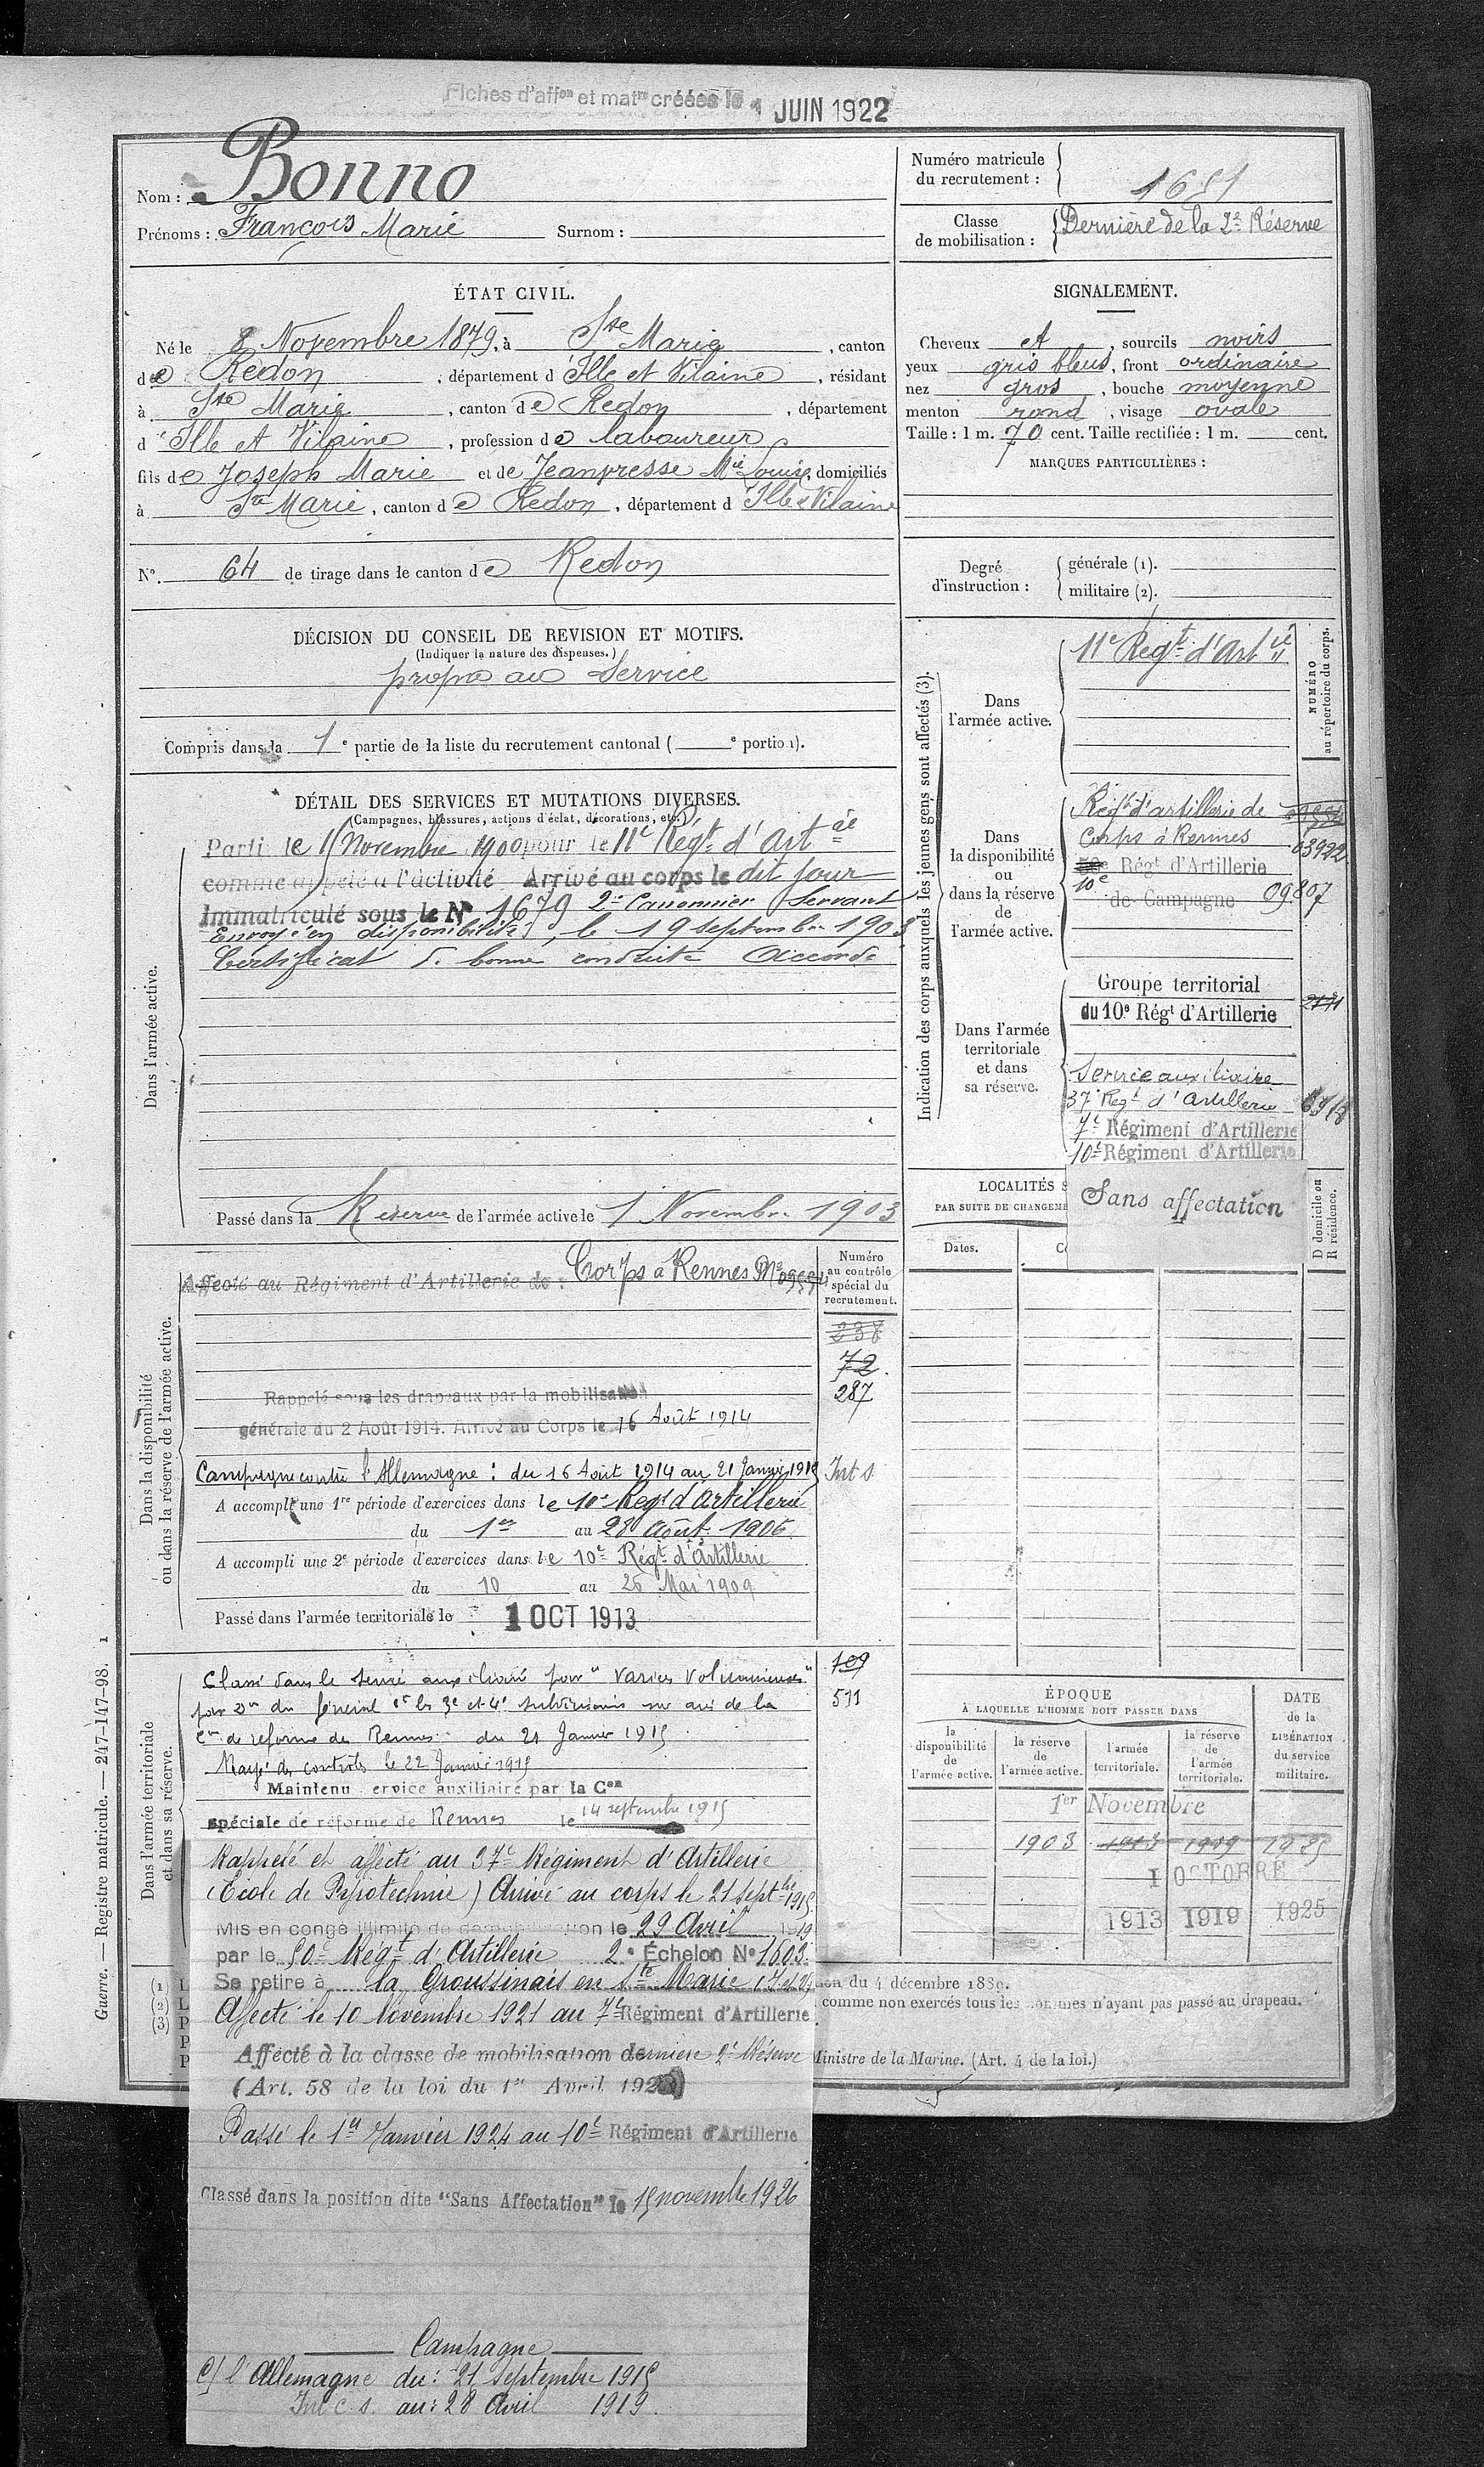 Fiches d'affon et matre créées le 1 JUIN 1922
Nom : Bonno
Prénoms : François Marie Surnom :
Numéro matricule
du recrutement :
1651
Classe
de mobilisation :
Dernière de la 2e Réserve
ÉTAT CIVIL.
Né le 8 Novembre 1879, à Ste Marie, canton
de Redon, département d'Ille et Vilaine, résidant
à Ste Marie, canton de Redon, département
d'Ille et Vilaine, profession de laboureur
fils de Joseph Marie et de Jeanpresse Mie Louise, domiciliés
à Ste Marie, canton de Redon, département d'Ille & Vilaine
No. 64 de tirage dans le canton de Redon
DÉCISION DU CONSEIL DE REVISION ET MOTIFS.
(Indiquer la nature des dispenses.)
propre au service
Compris dans la 1e partie de la liste du recrutement cantonal ( e portion).
DÉTAIL DES SERVICES ET MUTATIONS DIVERSES.
(Campagnes, blessures, actions d'éclat, décorations, etc.)
Dans l'armée active.
Parti le Novembre 1900 pour le 11e Régt d'Artie
comme appelé à l'activité Arrivé au corps le dit jour
Immatriculé sous le No 1679 2e Canonnier Servant
Envoyé en disponibilité, le 19 septembre 1903
Certificat de bonne conduite Accordé
Passé dans la Réserve de l'armée active le 1 Novembre 1903
Dans la disponibilité
ou dans la réserve de l'armée active.
Affecté au Régiment d'Artillerie de : Corps à Rennes
Numéro
au contrôle
spécial du
recrutement.
238
72
287
Rappelé sous les drapeaux par la mobilisation
générale du 2 Août 1914. Arrivé au Corps le 16 Août 1914
Campagne contre l'Allemagne : du 16 Août 1914 au 21 Janvier 1915 Int s
A accompli une 1re période d'exercices dans le 10e Régt d'Artillerie
du 1er au 28 Août 1906
A accompli une 2e période d'exercices dans le 10e Régt d'Artillerie
du 10 au 26 Mai 1909
Passé dans l'armée territoriale le 1 OCT 1913
Dans l'armée territoriale
et dans sa réserve.
Classé dans le service auxiliaire pour "Varices Volumineuses"
par Don du Général ct les 3e et 4e subdivisions sur avis de la
Con de réforme de Rennes du 21 Janvier 1915
Rayé des contrôles le 22 Janvier 1915
Maintenu service auxiliaire par la Con
spéciale de réforme de Rennes le 14 septembre 1915
709
511
Rappelé et affecté au 37e Régiment d'Artillerie
(École de Pyrotechnie) Arrivé au corps le 21 Septbre 1915
Mis en congé illimité de démobilisation le 29 Avril 1919
par le 50e Régt d'Artillerie 2e Échelon No 1603.
Se retire à la Groussinais en Ste Marie
Affecté le 10 Novembre 1921 au 7e Régiment d'Artillerie
Affecté à la classe de mobilisation dernière 2e Réserve
(Art. 58 de la loi du 1er Avril 1923)
Passé le 1er Janvier 1924 au 10e Régiment d'Artillerie
Classé dans la position dite "Sans Affectation" le 15 novembre 1926
Campagne
C/ l'Allemagne du : 21 septembre 1915
Int c. s. au : 28 Avril 1919.
SIGNALEMENT.
Cheveux et, sourcils noirs
yeux gris bleus, front ordinaire
nez gros, bouche moyenne
menton rond, visage ovale
Taille : 1 m. 70 cent. Taille rectifiée : 1 m. cent.
MARQUES PARTICULIÈRES :
Degré
d'instruction :
générale (1).
militaire (2).
Indication des corps auxquels les jeunes gens sont affectés (3).
NUMÉRO
au répertoire du corps.
Dans
l'armée active.
11e Régt d'Artie
Dans
la disponibilité
ou
dans la réserve
de
l'armée active.
Régt d'artillerie de
Corps à Rennes 03992
50e Régt d'Artillerie
10e
de Campagne 09807
Dans l'armée
territoriale
et dans
sa réserve.
Groupe territorial
du 10e Régt d'Artillerie
Service auxiliaire
37e Régt d'Artillerie
7e Régiment d'Artillerie
10e Régiment d'Artillerie
Sans affectation
LOCALITÉS
PAR SUITE DE CHANGEME
D domicile ou
R résidence.
Dates.
ÉPOQUE
À LAQUELLE L'HOMME DOIT PASSER DANS
DATE
de la
LIBÉRATION
du service
militaire.
la
disponibilité
de
l'armée active.
la réserve
de
l'armée active.
l'armée
territoriale.
la réserve
de
l'armée
territoriale.
1er Novembre
1903 1913 1919 1925
1 OCTOBRE
1913 1919 1925
(1) L
(2) L
(3) P
P
P
du 4 décembre 1889.
comme non exercés tous les hommes n'ayant pas passé au drapeau.
Ministre de la Marine. (Art. 4 de la loi.)
Guerre. — Registre matricule. — 247-147-98. 1